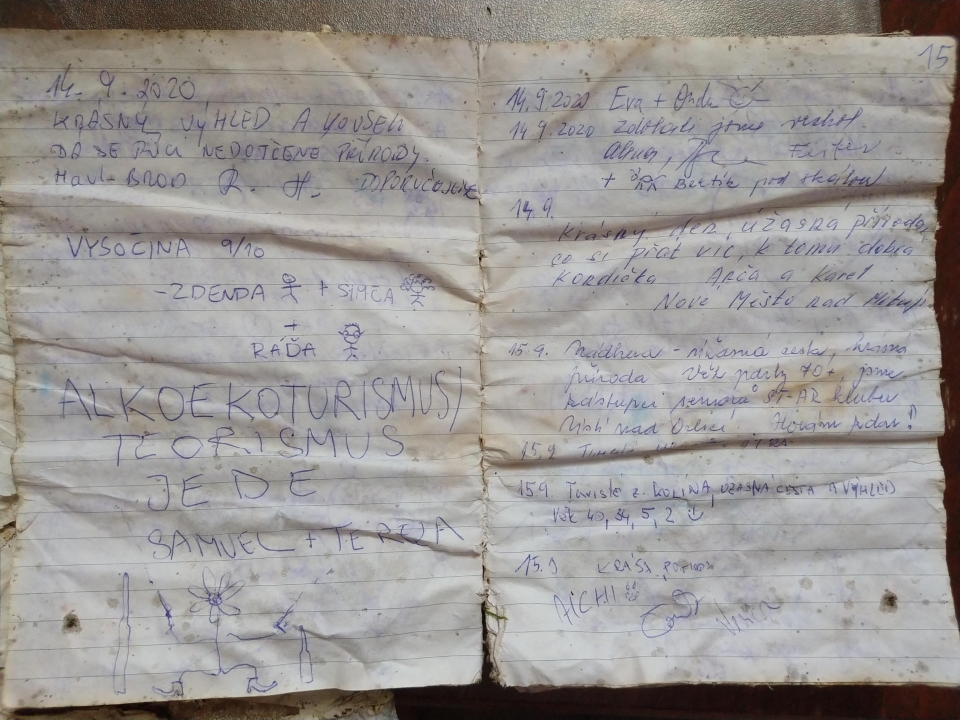 14. 9. 2020
KRÁSNÝ VÝHLED A KOUSEK
DÁ SE ŘÍCI NEDOTČENÉ PŘÍRODY.
HAVL. BROD R. H. DOPORUČUJEME
VYSOČINA 9/10
- ZDENDA + SIMČA
+
RÁĎA
ALKOEKOTURISMUS/
TEORISMUS
JEDE
SAMUEL + TEREZA
15
14.9.2020 Eva +
14.9.2020 Zdolali jsme vrchol.
+ Bertík pod skálou
14.9.
Krásný den, úžasná příroda,
co si přát víc, k tomu dobrá
kondička Apča a Karel
Nové Město nad Metují
15.9. Nádhera - úžasná cesta, krásná
příroda Věk party 70+, jsme
zástupci seniorů ST-AR klubu
Ústí nad Orlicí. Horám zdar!
15.9
15.9. Turisté z KOLÍNA, ÚŽASNÁ CESTA A VÝHLED
Věk 40, 34, 5, 2
15.9 KRÁSA
AICHI